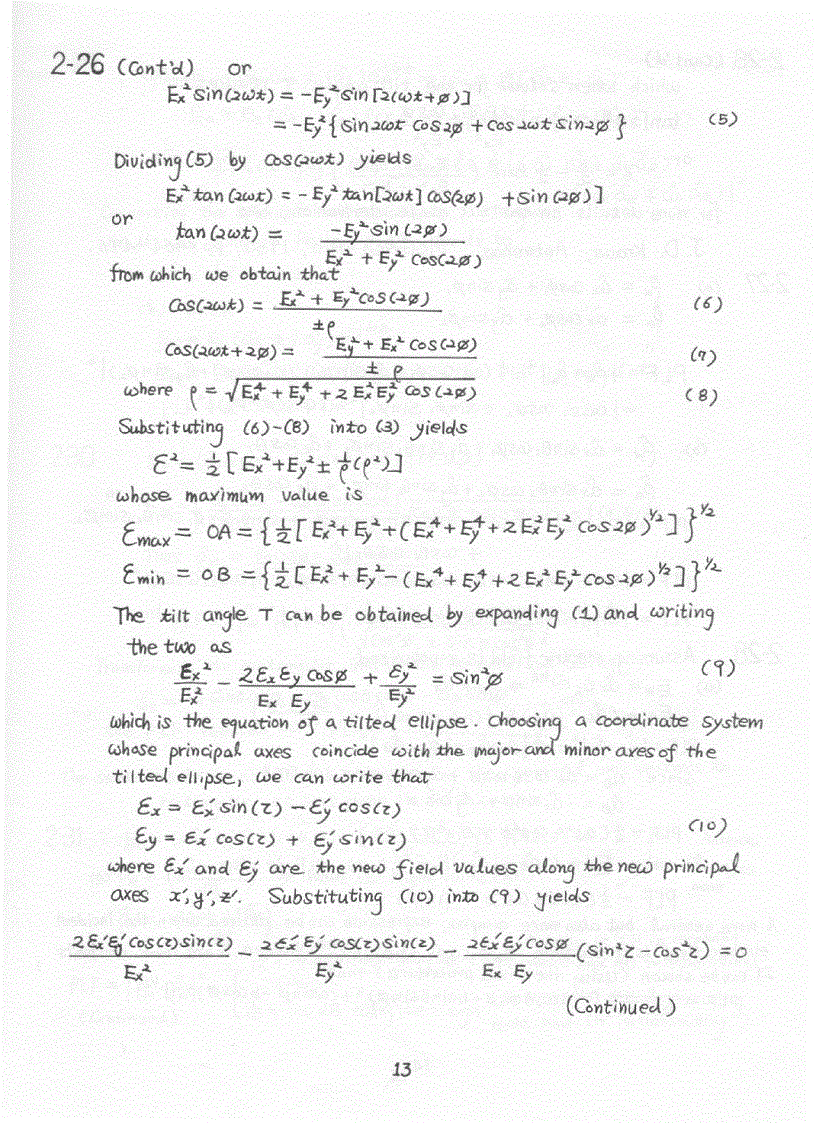 2-26 (Cont'd) or
Ex² sin(2ωt) = -Ey² sin[2(ωt+ø)]
= -Ey² { sin2ωt cos2ø + cos2ωt sin2ø } (5)
Dividing (5) by cos(2ωt) yields
Ex² tan(2ωt) = -Ey² tan[2ωt] cos(2ø) + sin(2ø)]
or
tan(2ωt) = -Ey² sin(2ø) / Ex² + Ey² cos(2ø)
from which we obtain that
cos(2ωt) = Ex² + Ey² cos(2ø) / ±ρ (6)
cos(2ωt+2ø) = Ey² + Ex² cos(2ø) / ±ρ (7)
where ρ = √Ex⁴ + Ey⁴ + 2 Ex² Ey² cos(2ø) (8)
Substituting (6)-(8) into (3) yields
ℰ² = 1/2 [Ex² + Ey² ± 1/ρ (ρ²)]
whose maximum value is
ℰmax = OA = {1/2 [Ex² + Ey² + (Ex⁴ + Ey⁴ + 2Ex² Ey² cos2ø)^1/2]}^1/2
ℰmin = OB = {1/2 [Ex² + Ey² - (Ex⁴ + Ey⁴ + 2Ex² Ey² cos2ø)^1/2]}^1/2
The tilt angle τ can be obtained by expanding (1) and writing
the two as
ℰx² / Ex² - 2ℰx ℰy cosø / Ex Ey + ℰy² / Ey² = sin²ø (9)
which is the equation of a tilted ellipse. choosing a coordinate system
whose principal axes coincide with the major and minor axes of the
tilted ellipse, we can write that
ℰx = ℰx' sin(τ) - ℰy' cos(τ)
ℰy = ℰx' cos(τ) + ℰy' sin(τ) (10)
where ℰx' and ℰy' are the new field values along the new principal
axes x', y', z'. Substituting (10) into (9) yields
2ℰx'ℰy' cos(τ)sin(τ) / Ex² - 2ℰx'ℰy' cos(τ)sin(τ) / Ey² - 2ℰx'ℰy' cosø / Ex Ey (sin²τ - cos²τ) = 0
(Continued)
13